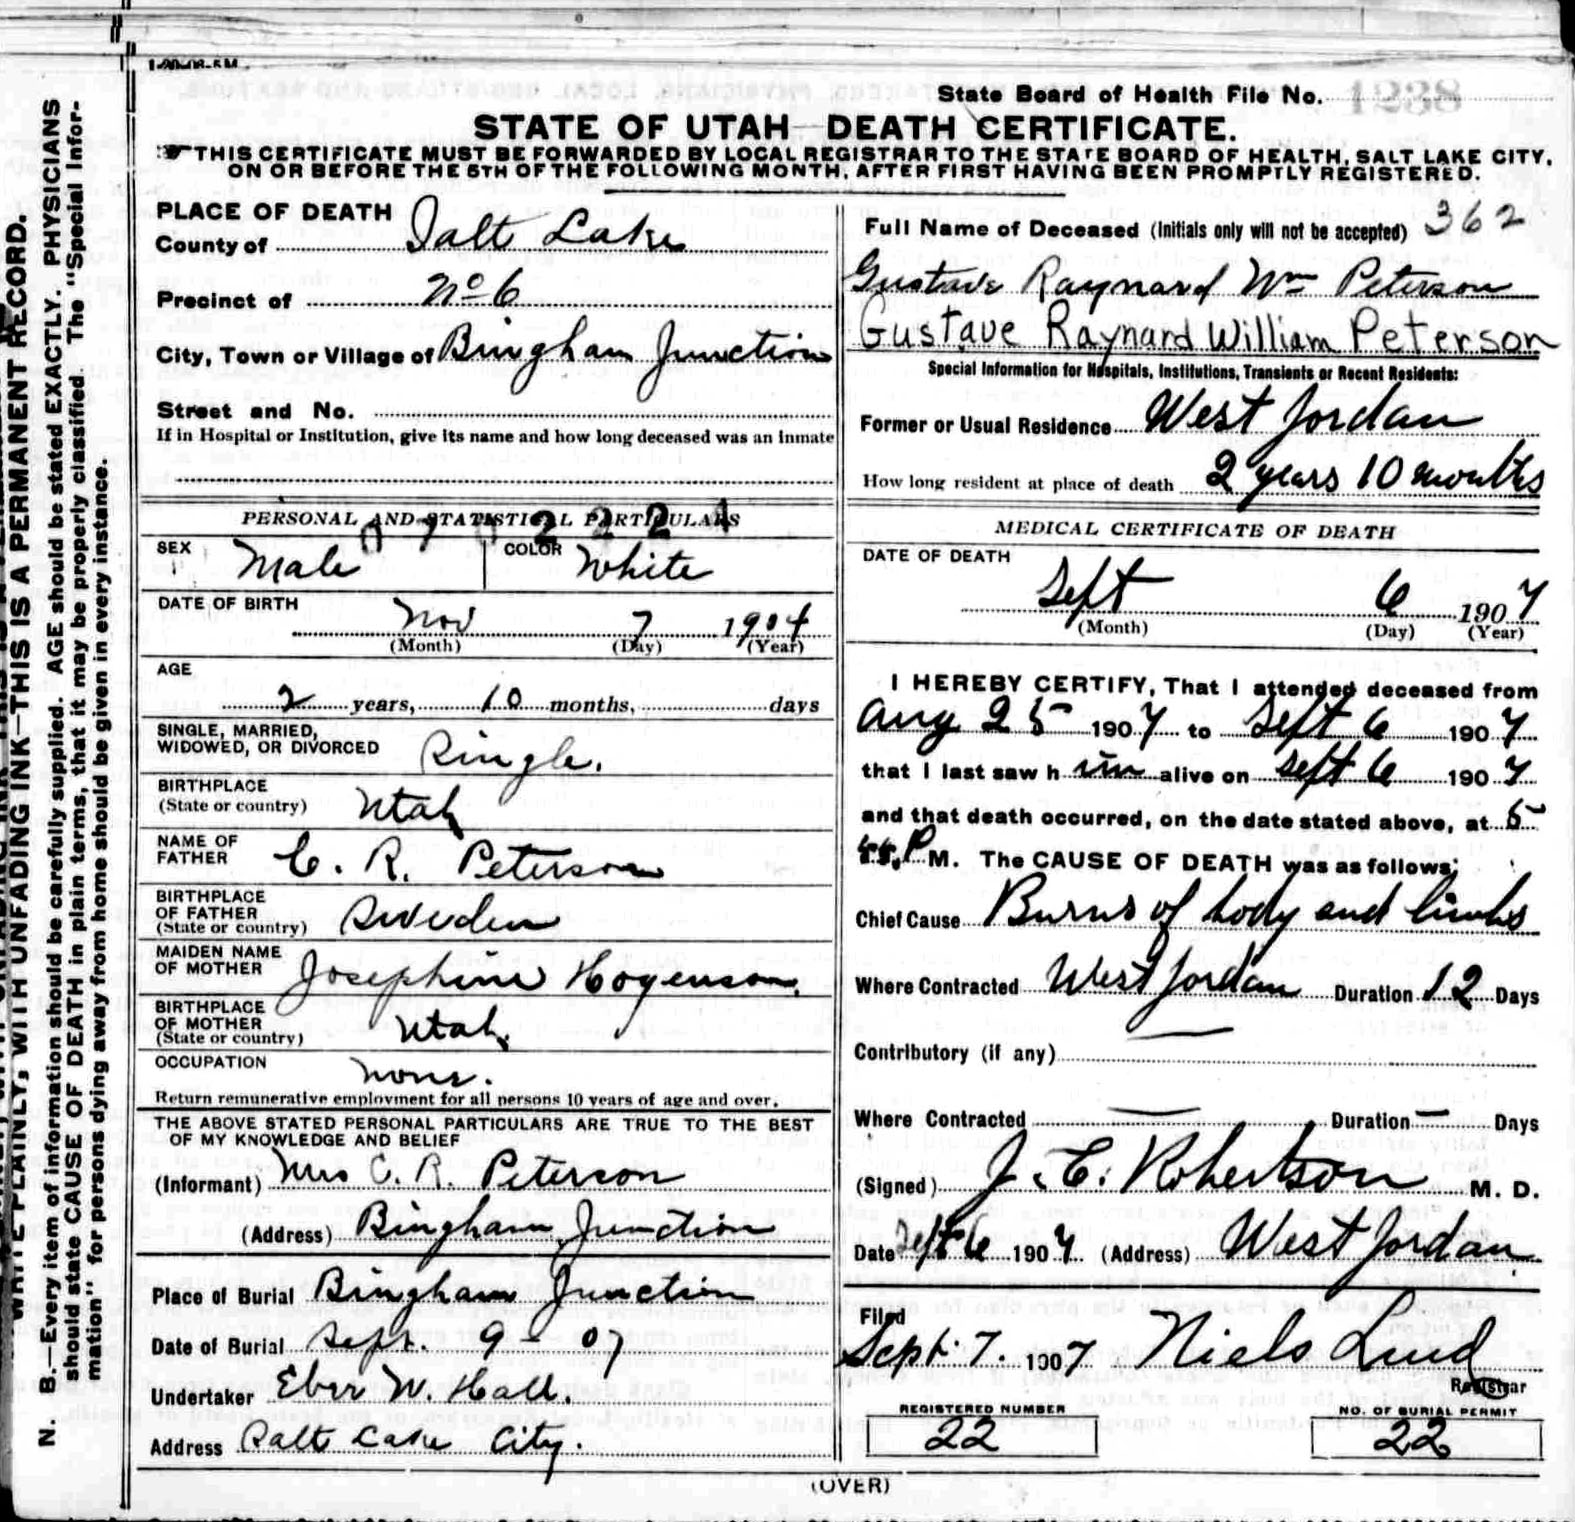 WRITE PLAINLY, WITH UNFADING INK—THIS IS A PERMANENT RECORD.
N. B.—Every item of information should be carefully supplied. AGE should be stated EXACTLY. PHYSICIANS
should state CAUSE OF DEATH in plain terms, that it may be properly classified. The "Special Infor-
mation" for persons dying away from home should be given in every instance.
State Board of Health File No. 1238
STATE OF UTAH—DEATH CERTIFICATE.
THIS CERTIFICATE MUST BE FORWARDED BY LOCAL REGISTRAR TO THE STATE BOARD OF HEALTH, SALT LAKE CITY,
ON OR BEFORE THE 5TH OF THE FOLLOWING MONTH, AFTER FIRST HAVING BEEN PROMPTLY REGISTERED.
PLACE OF DEATH
County of Salt Lake
Precinct of No 6
City, Town or Village of Bingham Junction
Street and No.
If in Hospital or Institution, give its name and how long deceased was an inmate
PERSONAL AND STATISTICAL PARTICULARS
SEX Male COLOR White
DATE OF BIRTH
Nov 7 1904
(Month) (Day) (Year)
AGE
2 years, 10 months, days
SINGLE, MARRIED,
WIDOWED, OR DIVORCED Single.
BIRTHPLACE
(State or country) Utah
NAME OF
FATHER C. R. Peterson
BIRTHPLACE
OF FATHER
(State or country) Sweden
MAIDEN NAME
OF MOTHER Josephine Hogenson.
BIRTHPLACE
OF MOTHER
(State or country) Utah.
OCCUPATION none.
Return remunerative employment for all persons 10 years of age and over.
THE ABOVE STATED PERSONAL PARTICULARS ARE TRUE TO THE BEST
OF MY KNOWLEDGE AND BELIEF
(Informant) Mrs C. R. Peterson
(Address) Bingham Junction
Place of Burial Bingham Junction
Date of Burial Sept. 9 - 07
Undertaker Eber W. Hall.
Address Salt Lake City.
Full Name of Deceased (Initials only will not be accepted) 362
Gustave Raynard Wm Peterson
Gustave Raynard William Peterson
Special Information for Hospitals, Institutions, Transients or Recent Residents:
Former or Usual Residence West Jordan
How long resident at place of death 2 years 10 months
MEDICAL CERTIFICATE OF DEATH
DATE OF DEATH
Sept 6 1907
(Month) (Day) (Year)
I HEREBY CERTIFY, That I attended deceased from
Aug 25 1907 to Sept 6 1907
that I last saw him alive on Sept 6 1907
and that death occurred, on the date stated above, at 5
P M. The CAUSE OF DEATH was as follows;
Chief Cause Burns of body and limbs
Where Contracted West Jordan Duration 12 Days
Contributory (if any)
Where Contracted — Duration — Days
(Signed) J. E. Robertson M. D.
Date Sept 6 1907 (Address) West Jordan
Filed
Sept. 7. 1907 Niels Lind
Registrar
REGISTERED NUMBER
22
NO. OF BURIAL PERMIT
22
(OVER)